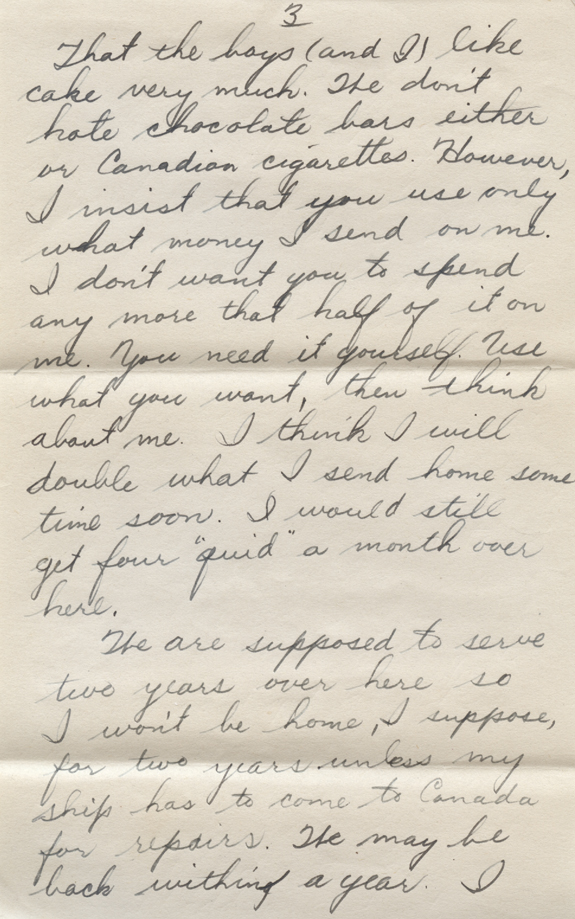 3
That the boys (and I) like
cake very much. We don't
hate chocolate bars either
or Canadian cigarettes. However,
I insist that you use only
what money I send on me.
I don't want you to spend
any more that half of it on
me. You need it yourself. Use
what you want, then think
about me. I think I will
double what I send home some
time soon. I would still
get four "quid" a month over
here.
We are supposed to serve
two years over here so
I won't be home, I suppose,
for two years unless my
ship has to come to Canada
for repairs. We may be
back withing a year. I